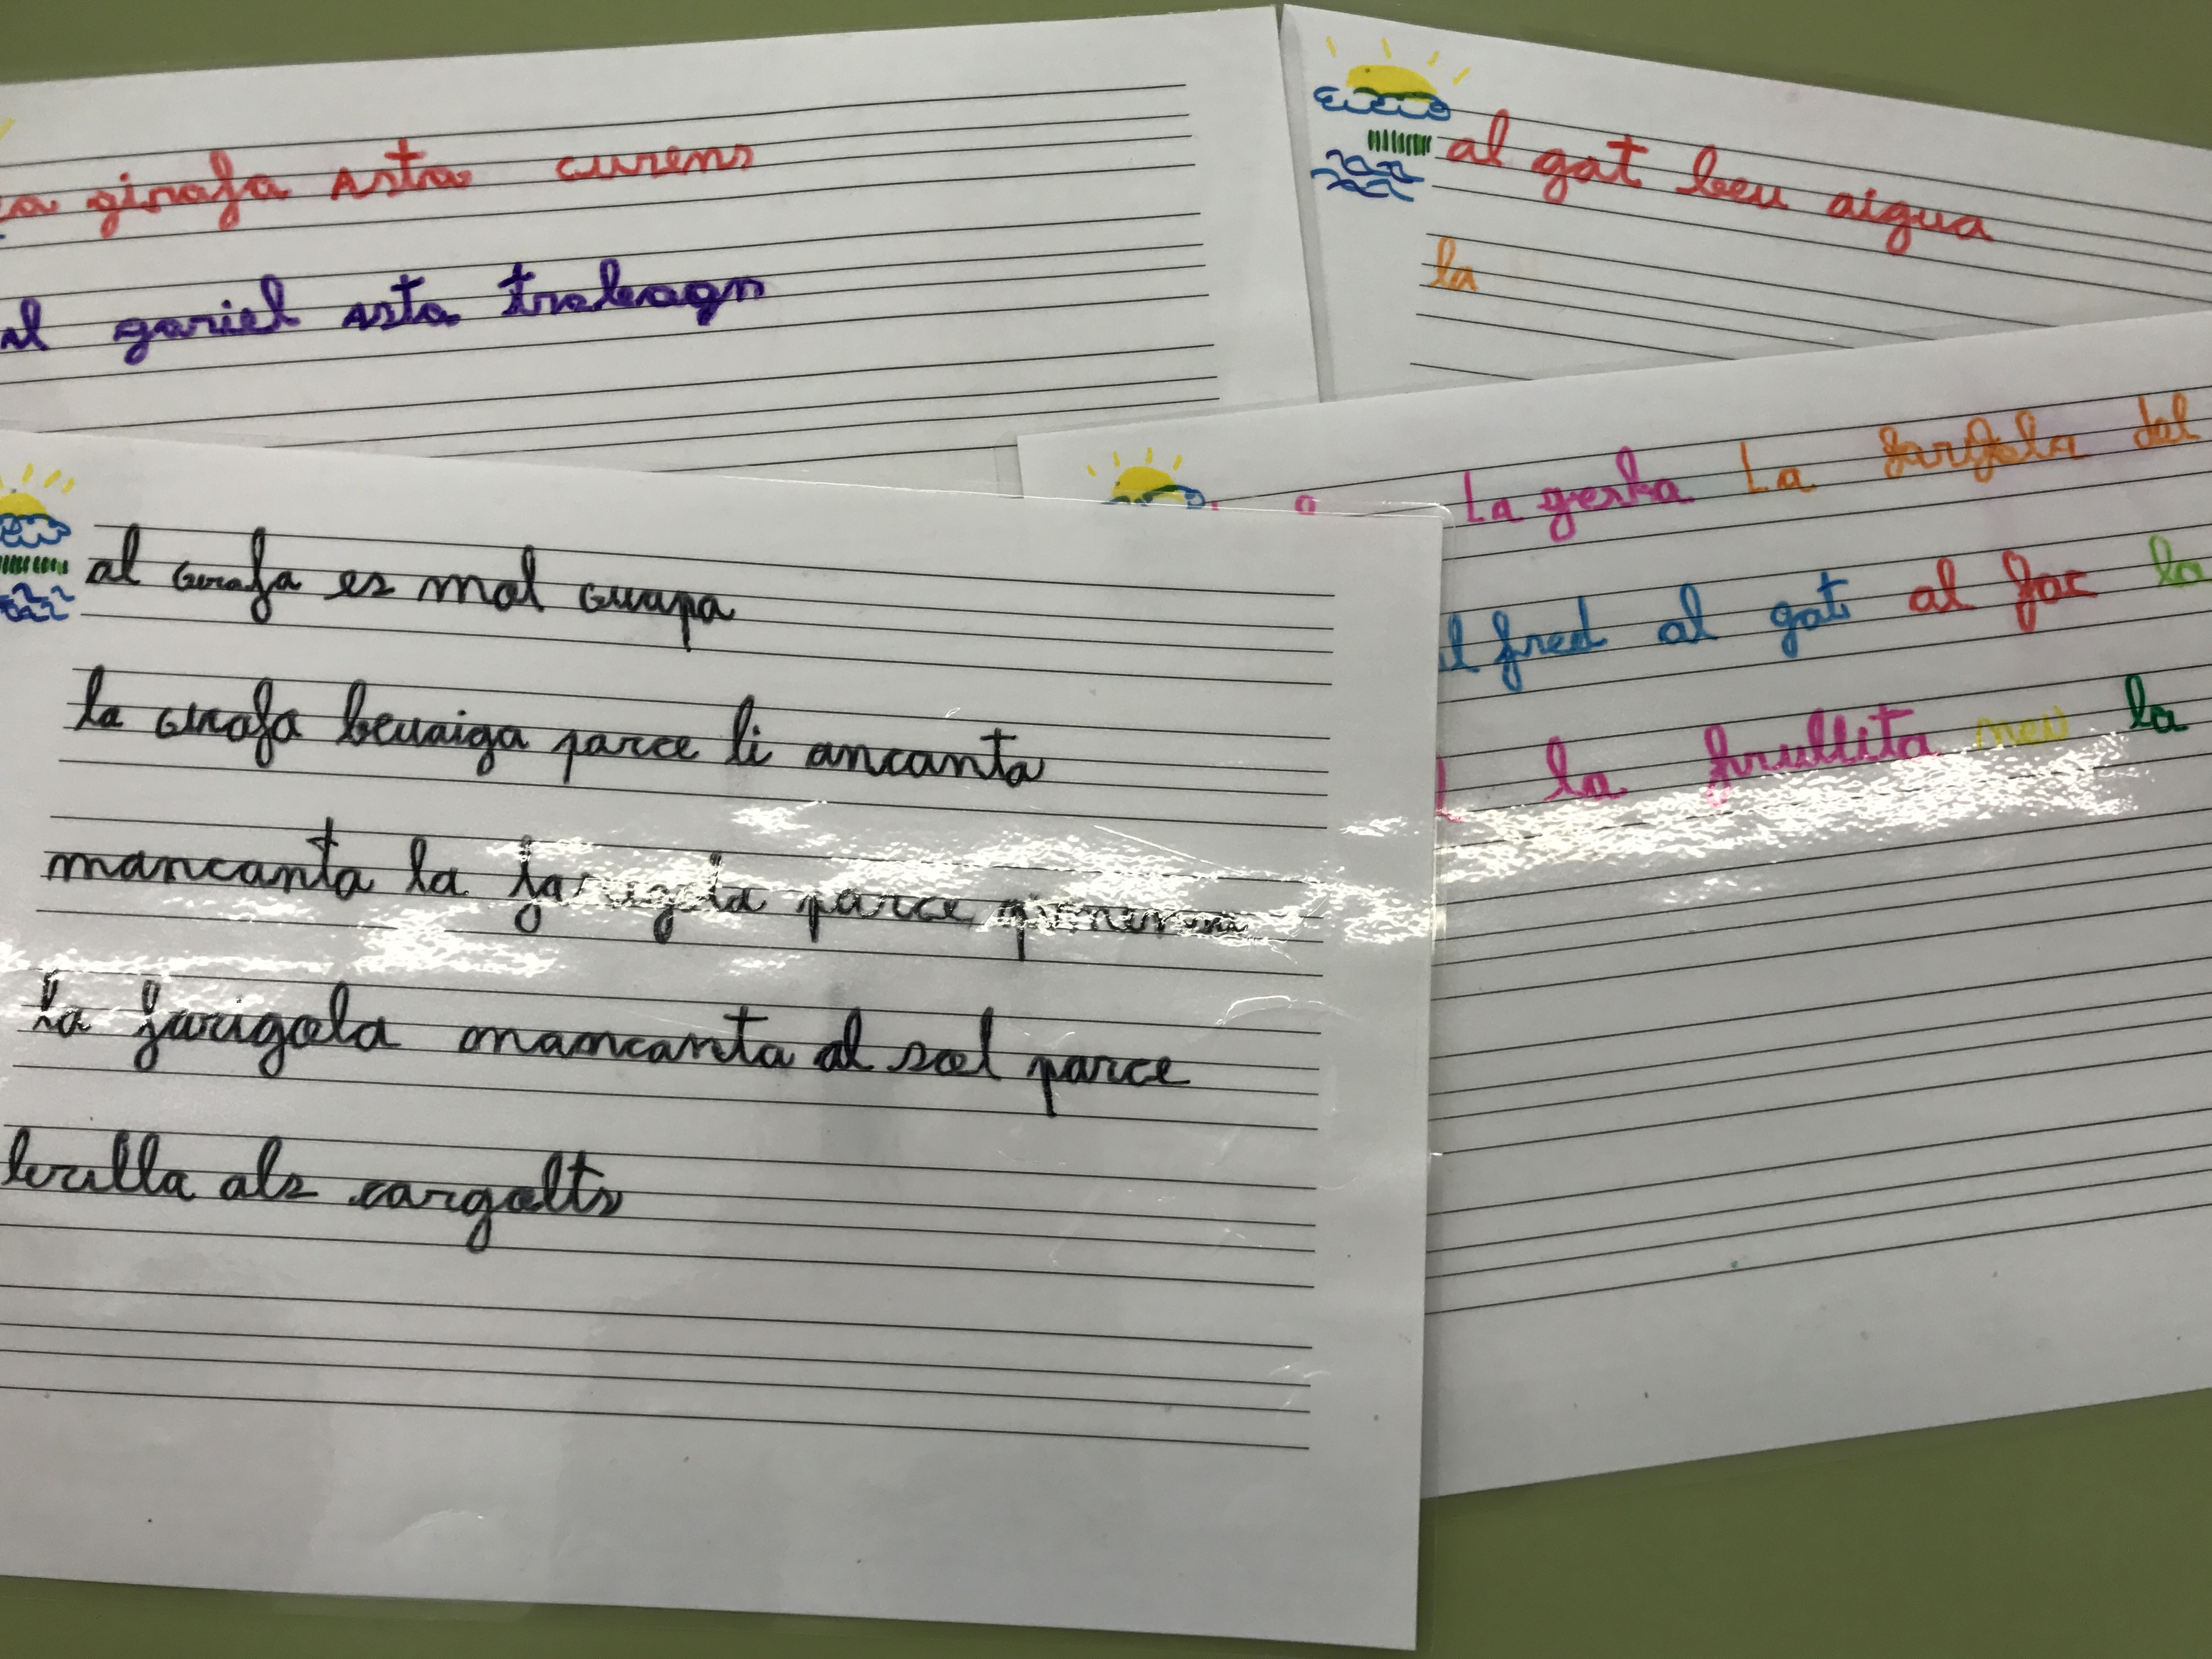 a girafa asta curens
al gariel asta trabagn
al gat beu aigua
la
La gerka La fargola del
l fred al gat al foc la
la frullita neu la
al girafa es mol guapa
la girafa beuaiga parce li ancanta
mancanta la farigola parce
la farigola mancanta al sol parce
brilla als cargolts